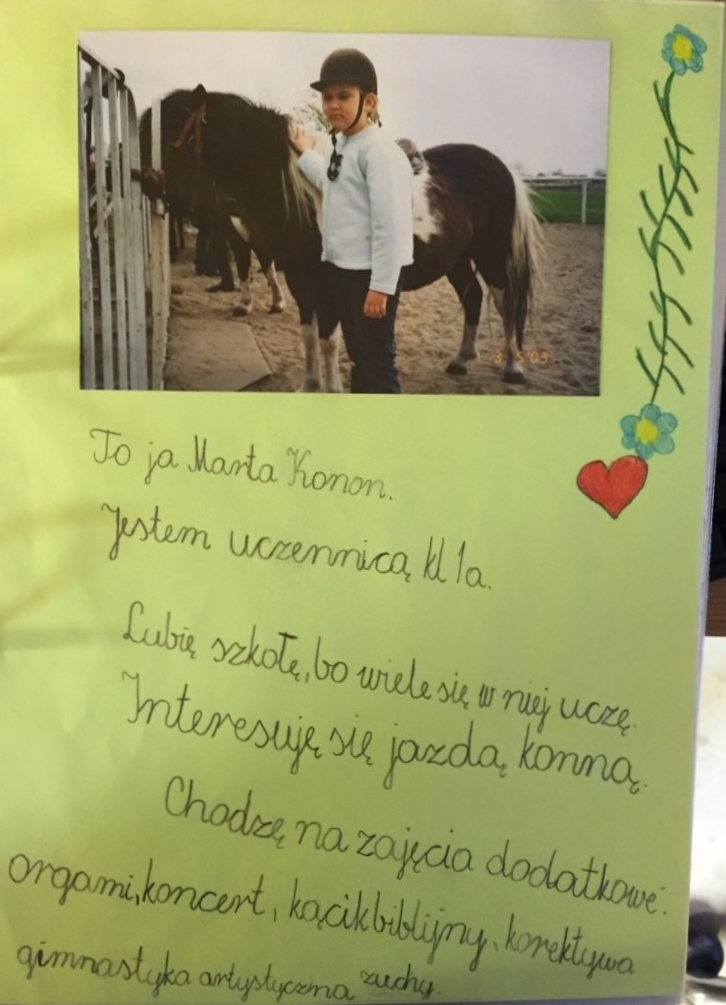 3 5'03
To ja Marta Konon.
Jestem uczennicą kl 1a.
Lubię szkołę, bo wiele się w niej uczę.
Interesuję się jazdą konną.
Chodzę na zajęcia dodatkowe:
orgami, koncert, kącik biblijny, korektywa
gimnastyka artystyczna zuchy.